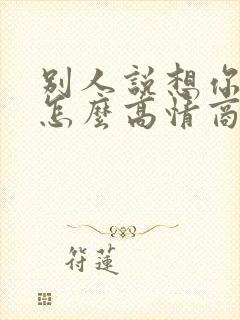 别人説想你
怎麼高情商
符蓮